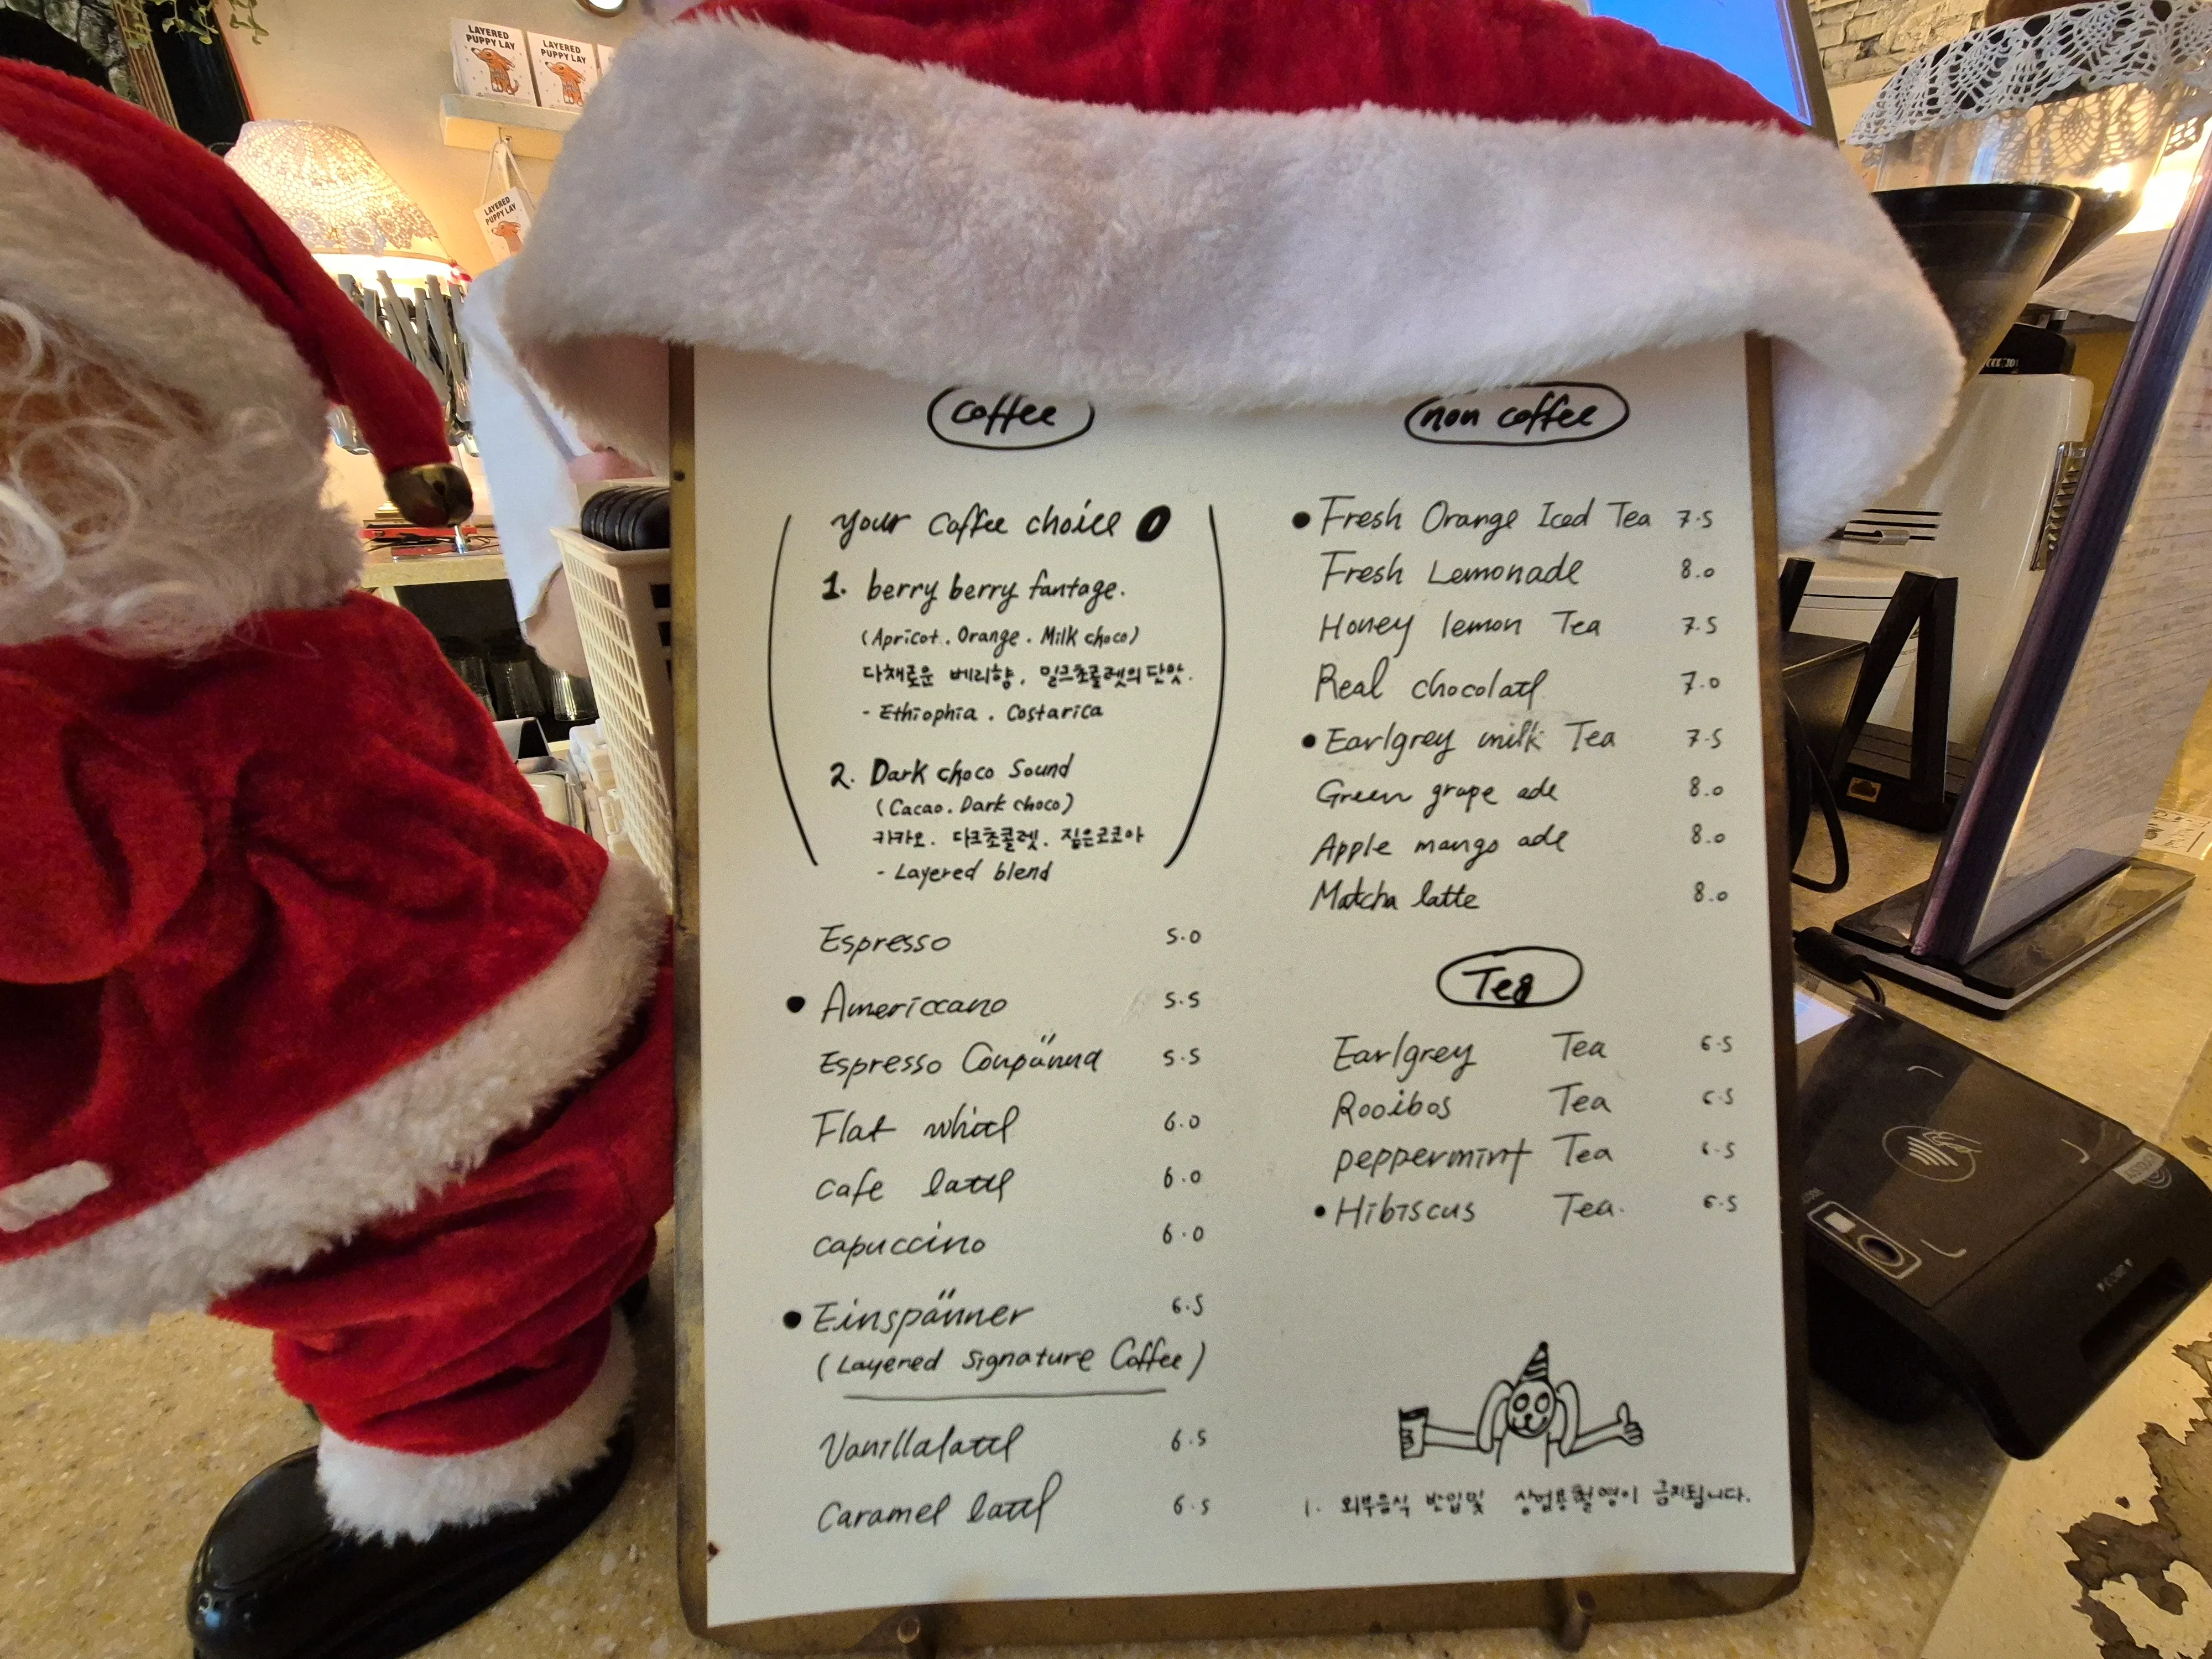 LAYERED
PUPPY LAY
LAYERED
PUPPY LAY
LAYERED
PUPPY LAY
Coffee
your coffee choice
1. berry berry fantage.
(Apricot. Orange. Milk choco)
다채로운 베리향, 밀크초콜렛의 단맛.
- Ethiophia. Costarica
2. Dark choco Sound
(Cacao. Dark choco)
카카오. 다크초콜렛. 짙은코코아
- Layered blend
Espresso 5.0
• Americcano 5.5
Espresso Conpänna 5.5
Flat white 6.0
cafe latte 6.0
capuccino 6.0
• Einspänner 6.5
(Layered Signature Coffee)
Vanillalatte 6.5
Caramel latte 6.5
non coffee
• Fresh Orange Iced Tea 7.5
Fresh Lemonade 8.0
Honey lemon Tea 7.5
Real chocolate 7.0
• Earlgrey milk Tea 7.5
Green grape ade 8.0
Apple mango ade 8.0
Matcha latte 8.0
Tea
Earlgrey Tea 6.5
Rooibos Tea 6.5
peppermint Tea 6.5
• Hibiscus Tea. 6.5
1. 외부음식 반입및 상업용촬영이 금지됩니다.